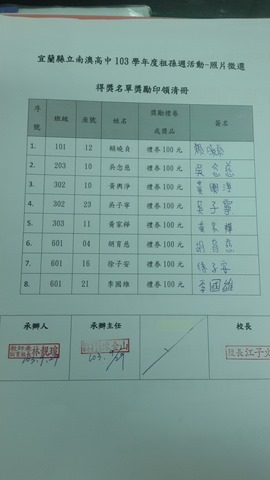 宜蘭縣立南澳高中 103 學年度祖孫週活動-照片徵選
得獎名單獎勵印領清冊
序號 班級 座號 姓名 獎勵禮券或獎品 簽名
1. 101 12 賴曉貞 禮券 100 元
2. 203 10 吳念慈 禮券 100 元 吳念慈
3. 302 10 黃興淨 禮券 100 元 黃興淨
4. 302 23 吳子寧 禮券 100 元 吳子寧
5. 303 11 黃家樺 禮券 100 元 黃家樺
6. 601 04 胡育慈 禮券 100 元 胡育慈
7. 601 16 徐子安 禮券 100 元 徐子安
8. 601 21 李國維 禮券 100 元 李國維
承辦人 承辦主任 校長
校長江子